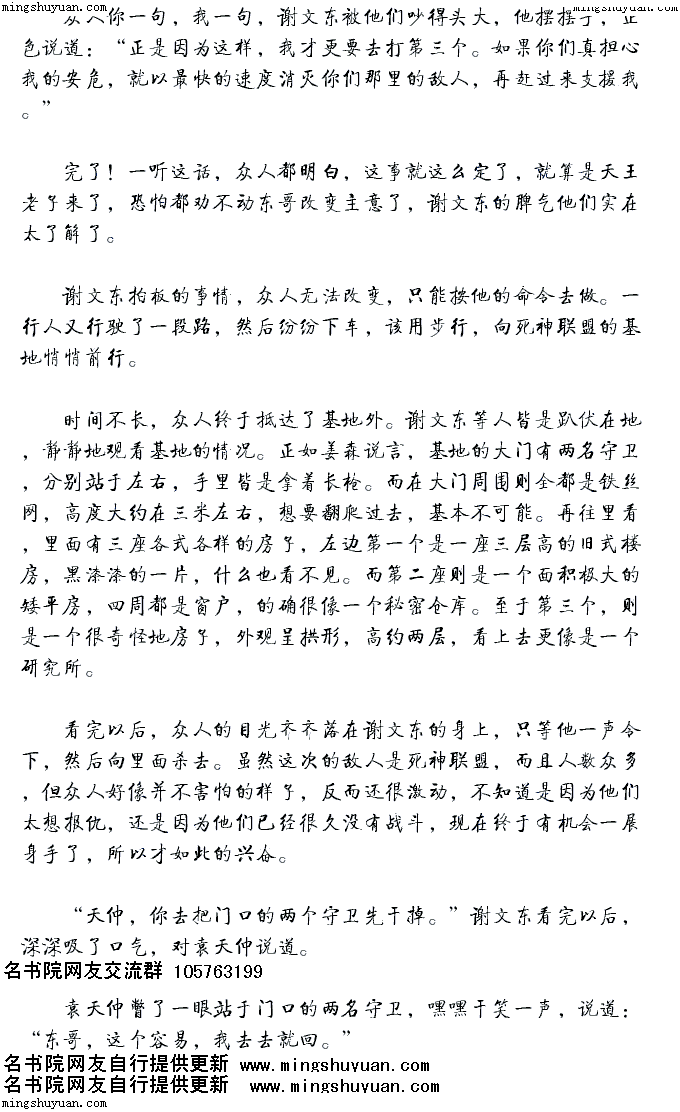 mingshuyuan.com mingshuyuan.com
众人你一句，我一句，谢文东被他们吵得头大，他摆摆手，正
色说道：“正是因为这样，我才更要去打第三个。如果你们真担心
我的安危，就以最快的速度消灭你们那里的敌人，再赶过来支援我
。”
完了！一听这话，众人都明白，这事就这么定了，就算是天王
老子来了，恐怕都劝不动东哥改变主意了，谢文东的脾气他们实在
太了解了。
谢文东拍板的事情，众人无法改变，只能按他的命令去做。一
行人又行驶了一段路，然后纷纷下车，该用步行，向死神联盟的基
地悄悄前行。
时间不长，众人终于抵达了基地外。谢文东等人皆是趴伏在地
，静静地观看基地的情况。正如姜森说言，基地的大门有两名守卫
，分别站于左右，手里皆是拿着长枪。而在大门周围则全都是铁丝
网，高度大约在三米左右，想要翻爬过去，基本不可能。再往里看
，里面有三座各式各样的房子，左边第一个是一座三层高的旧式楼
房，黑漆漆的一片，什么也看不见。而第二座则是一个面积极大的
矮平房，四周都是窗户，的确很像一个秘密仓库。至于第三个，则
是一个很奇怪地房子，外观呈拱形，高约两层，看上去更像是一个
研究所。
看完以后，众人的目光齐齐落在谢文东的身上，只等他一声令
下，然后向里面杀去。虽然这次的敌人是死神联盟，而且人数众多
，但众人好像并不害怕的样子，反而还很激动，不知道是因为他们
太想报仇，还是因为他们已经很久没有战斗，现在终于有机会一展
身手了，所以才如此的兴奋。
“天仲，你去把门口的两个守卫先干掉。”谢文东看完以后，
深深吸了口气，对袁天仲说道。
名书院网友交流群 105763199
袁天仲瞥了一眼站于门口的两名守卫，嘿嘿干笑一声，说道：
“东哥，这个容易，我去去就回。”
名书院网友自行提供更新 www.mingshuyuan.com
名书院网友自行提供更新 www.mingshuyuan.com
mingshuyuan.com mingshuyuan.com